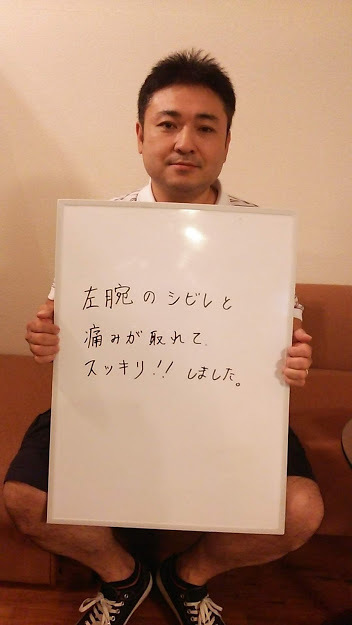 左腕のシビレと
痛みが取れて、
スッキリ!!しました。